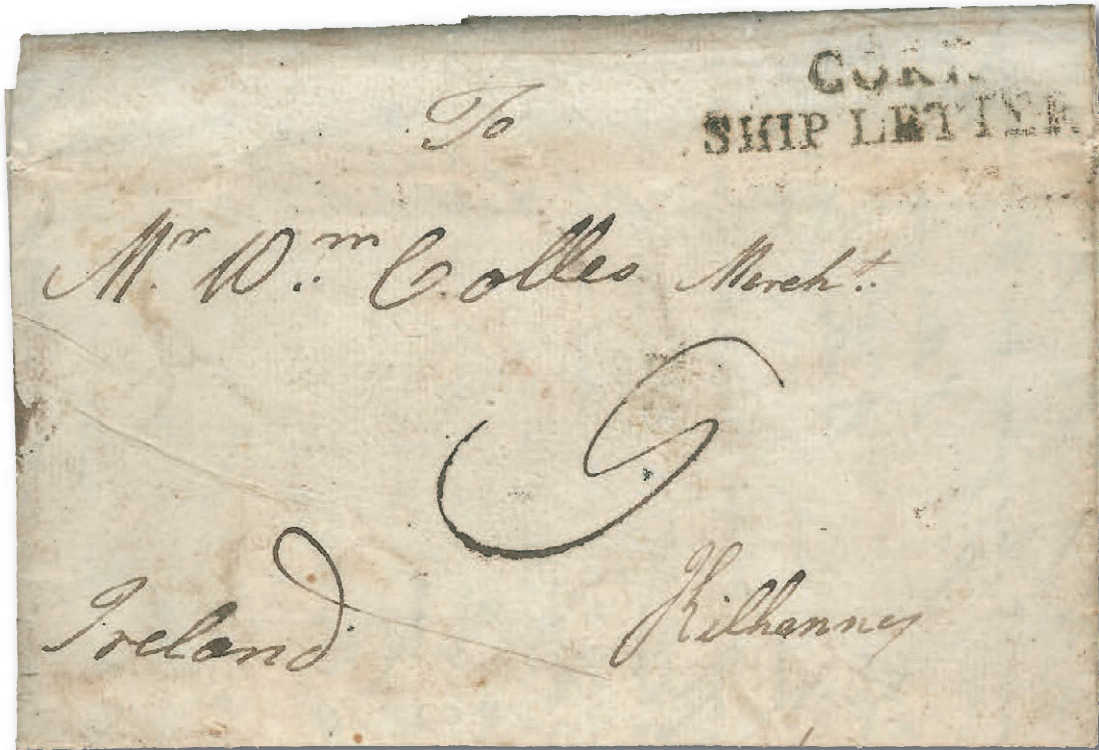 CORK
SHIP LETTER
To
Mr. Wm. Colles Mercht.
Ireland
Kilkenney